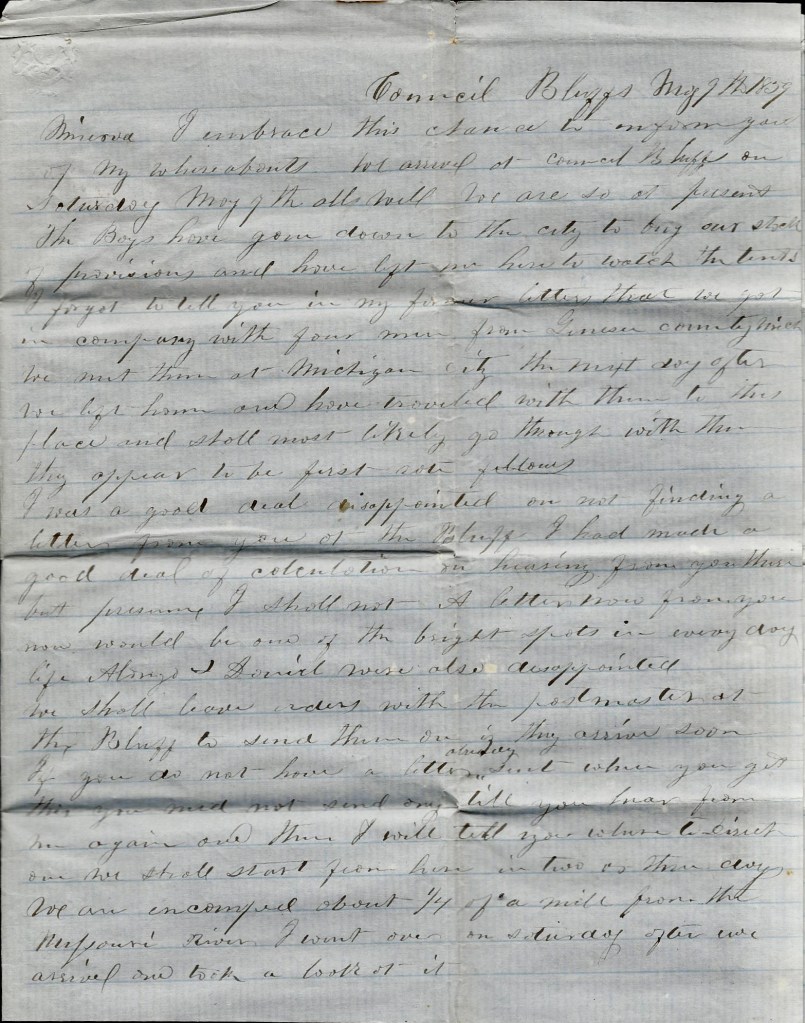 Council Bluffs May 9th 1859
Minerva I embrace this chance to inform you
of my whereabouts. We arrived at council Bluffs on
Saturday May 7th all well We are so at present
The Boys have gone down to the city to buy our stock
of provisions and have left me here to watch the tents
I forgot to tell you in my former letter that we got
in company with four men from Genesee county Mich
We met them at Michigan city the next day after
we left home and have traveled with them to this
place and shall most likely go through with them
they appear to be first rate fellows
I was a good deal disappointed on not finding a
letter from you at the Bluffs I had made a
good deal of calculation on hearing from you there
but presume I shall not A letter now from you
now would be one of the bright spots in every day
life Alonzo & Daniel were also disappointed
we shall leave orders with the postmaster at
the Bluff to send them on if they arrive soon
If you do not have a letter already sent when you get
this you need not send any till you hear from
me again and then I will tell you where to direct
one we shall start from here in two or three days
We are encamped about 1/4 of a mile from the
Missouri River I went over on saturday after we
arrived and took a look at it